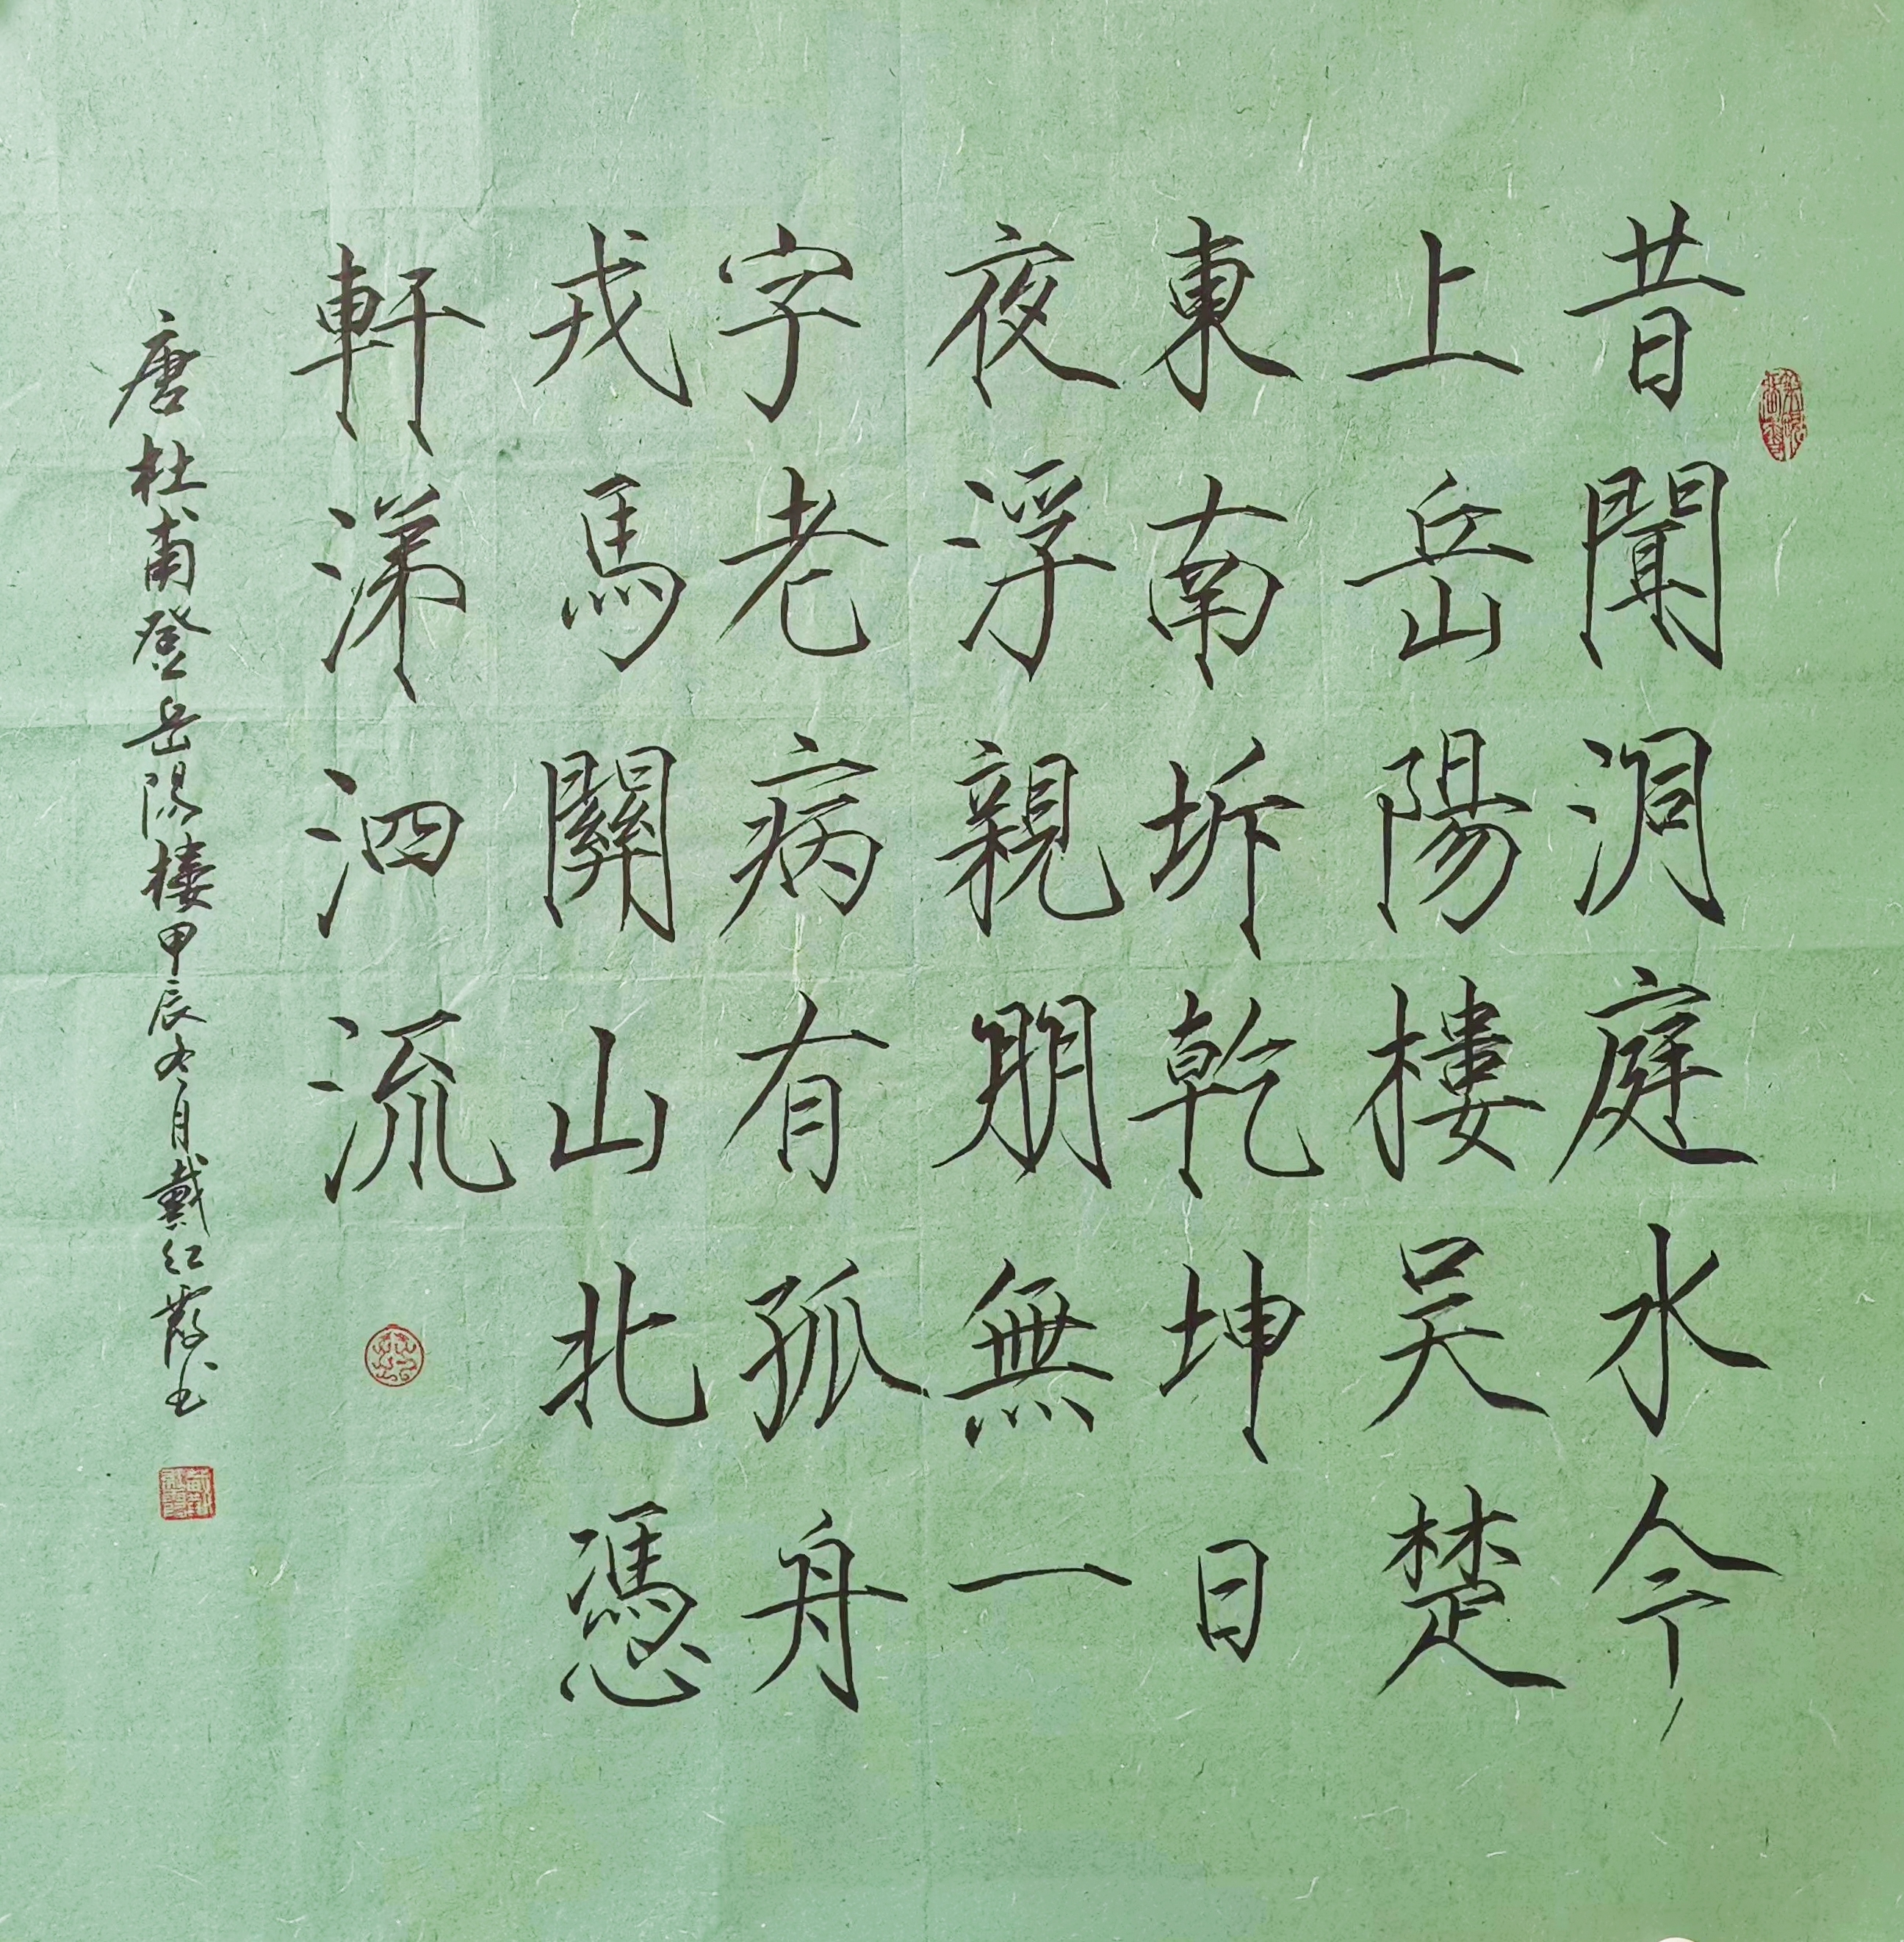 昔聞洞庭水今
上岳陽樓吴楚
東南坼乾坤日
夜浮親朋無一
字老病有孤舟
戎馬關山北憑
軒涕泗流
唐杜甫登岳陽樓甲辰冬月戴紅霞书